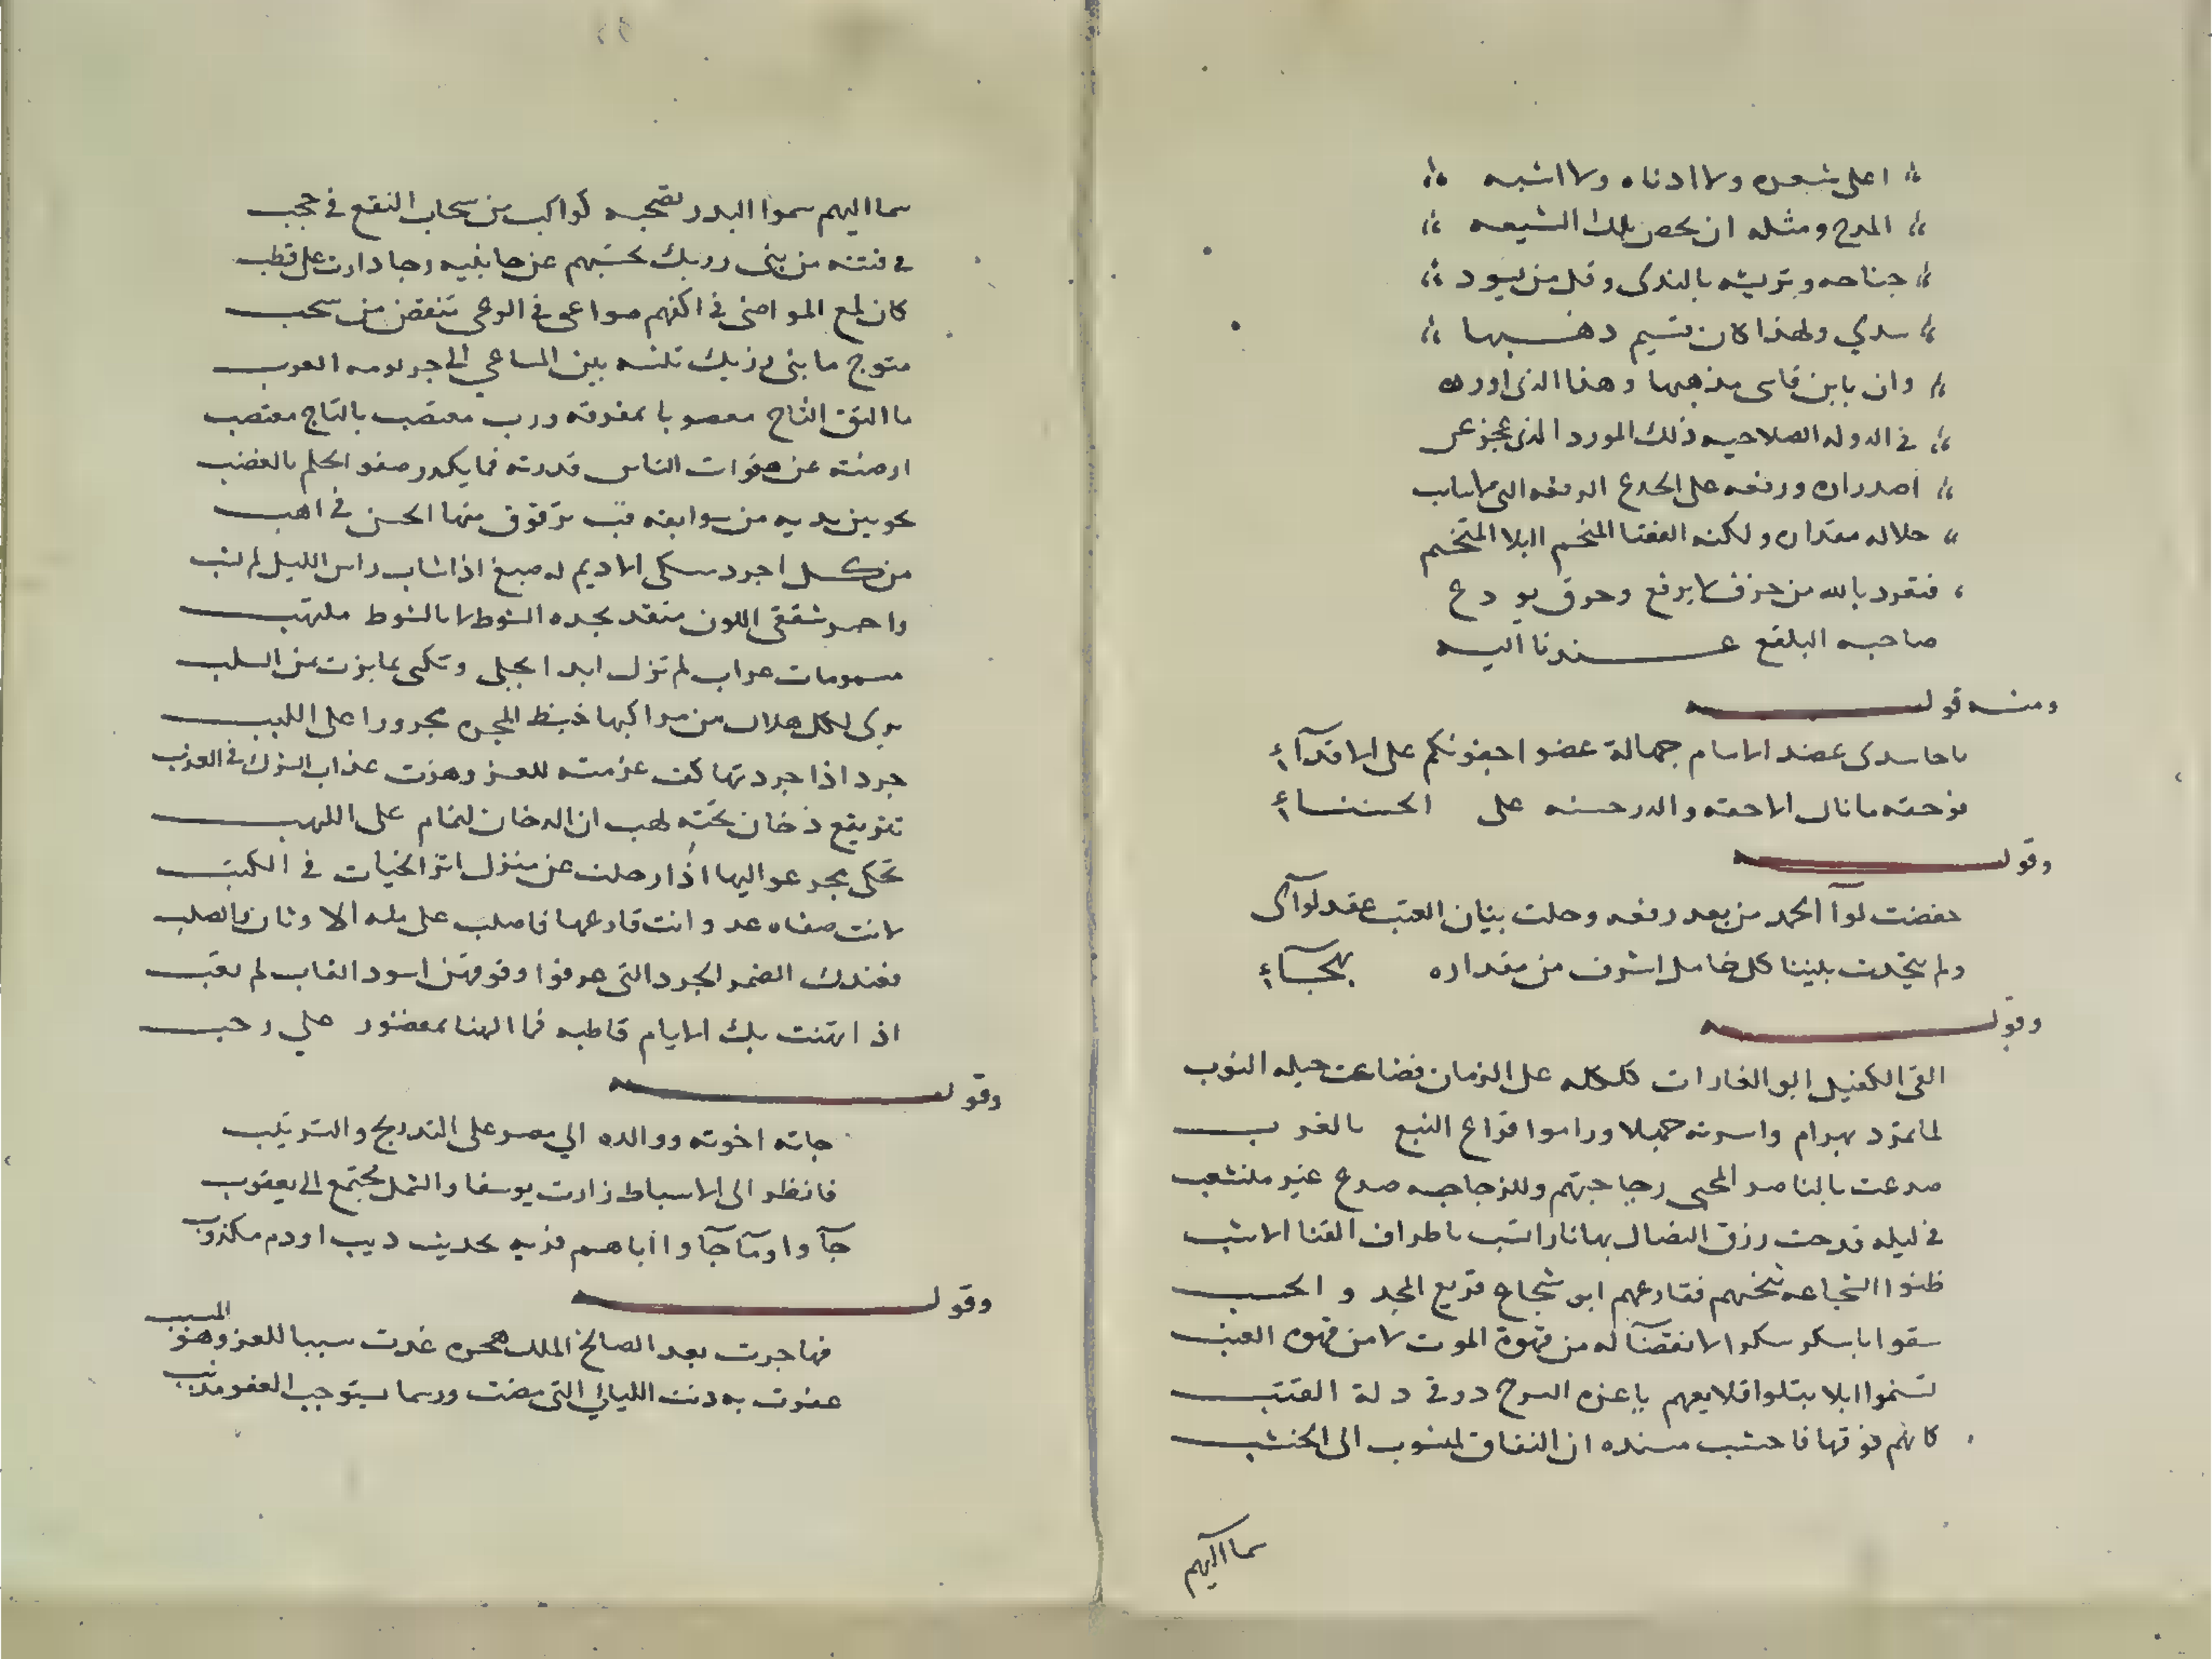 اعلى شعره ولا ادناه ولا اشبه
المدح ومثله ان يحص بتلك الشيعه
جناحه وتريشه بالندى وقل من يسود
سدي ولهذا كان يشيم
وان باين قاسى مذهبها وهذا الذى اورده
في الدوله الصلاحيه ذلك المورد الذى عجز عن
اصدراه ورفعه على الجدع الرفعه التي
جلاله مقداره ولكنه الفقنا المنخم البلا المتخم
فنفرد بالله من حزف لا يرفع وحرق يودع
صاحبه البلقع عندنا اليه
ومنه قوله
يا حاسدى عضد الامام جمالة غضوا جفونكم على الاقدآء
فوحقه ما نال الا حقه والدر حسنه على الحسناء
وقوله
خفضت لوآ الحمد من بعد رفعه وحلت بنيان العتب عقد لوآى
ولم يتحدث بليننا كل خامل اشرف من مقداره بهجآء
وقوله
القى الكفيل ابو الغارات كلكله على الزمان فضاعت حيله النوب
لما تمرد بهرام واسرته جهلا وراموا قراع النبع بالغرب
صدعت بالناصر المحيى زجاجتهم وللزجاجه صدع غير منشعب
في ليله قدحت رزق النصال بها نارا تشب باطراف القنا الاشب
ظنوا الشجاعه تنجيهم فقارعهم ابو شجاع قريع المجد والحسب
سقوا باسكر سكرا لا انقضآ له من قهوة الموت لا من قهوه العنب
تسنموا ابلا يتلوا قلايعهم يا عزه السرج درقى دلة القتب
كانهم فوقها خشب مسنده ان النفاق لمنسوب الى الخشب
سما اليهم
سما اليهم سموا البدر تصحبه كواكب من سحاب النقع في حجب
في فتيه من بنى رزيك تحسبهم عن جانبيه رحا دارت على قطب
كان لمع المواضى في اكفهم صواعق في الوغى تنقض من سحب
متوج ما بنى رزيك تلثه بين المساعي الى العرب
ما التق التاج معصوبا بمفرقه ورب معتصب بالتاج مغتصب
ارصنته عن هفوات الناس قدرته فما يكدر صفو الحلم بالغضب
نحو بين يديه من سوابقه قب ترقرق منها الحسن في اهب
من كل اجرد مسكى الاديم له صبغ اذا شاب راس الليل لم يشب
واحمر شفقى اللون متقد يجده الشوط لا بالشوط ملتهب
مسمومات عراب لم تزل ابدا تجلى وتكسى بما بزت من السلب
يرى لكل هلال من مراكبها خيط المجره مجرورا على اللبب
جرد اذا جردتها كف عزمته للغزو هزت عذاب الترك في العذب
تقويقع دخان تحته لهب ان الدخان لنمام على اللهب
تحكى بجر عواليها اذا رحلت عن منزل اثر الحيات في الكثب
لانت صفاه عد وانت قارعها فاصلب على مله الاوثان والصلب
فعندك الضمر الجرد التى عرفوا وفوقهن اسود الغاب لم تغب
اذ اتهنت بك الايام قاطبه فما الهنا بمقصور على رحب
وقوله
جاته اخوته ووالده الي مصر على التدريج والترتيب
فانظر الى الاسباط زارت يوسفا والشمل مجتمع الى يعقوب
جآوا وما جآوا اباهم فريه بحديث ذيب او دم مكذوب
وقوله
فهاجرت بعد الصالخ الملك هجره غدت سببا للعز وهو المسبب
غفرت به ذنب الليالي التى مضت وربما يستوجب العفو مذنب